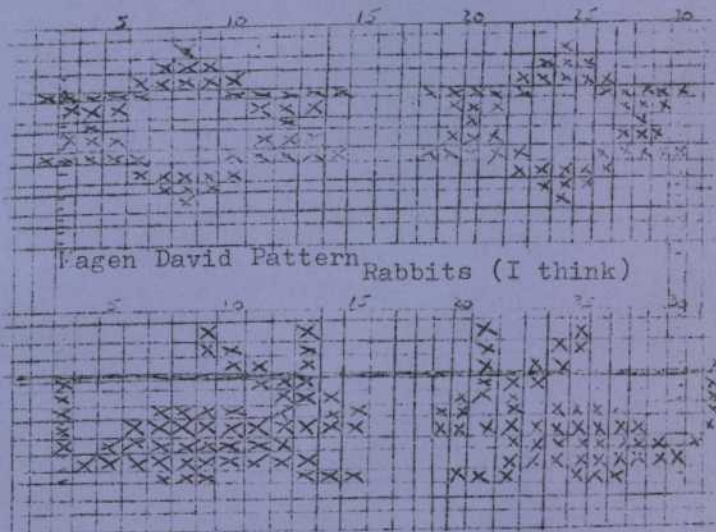 5 10 15 20 25 30
Magen David Pattern Rabbits (I think)
5 10 15 20 25 30